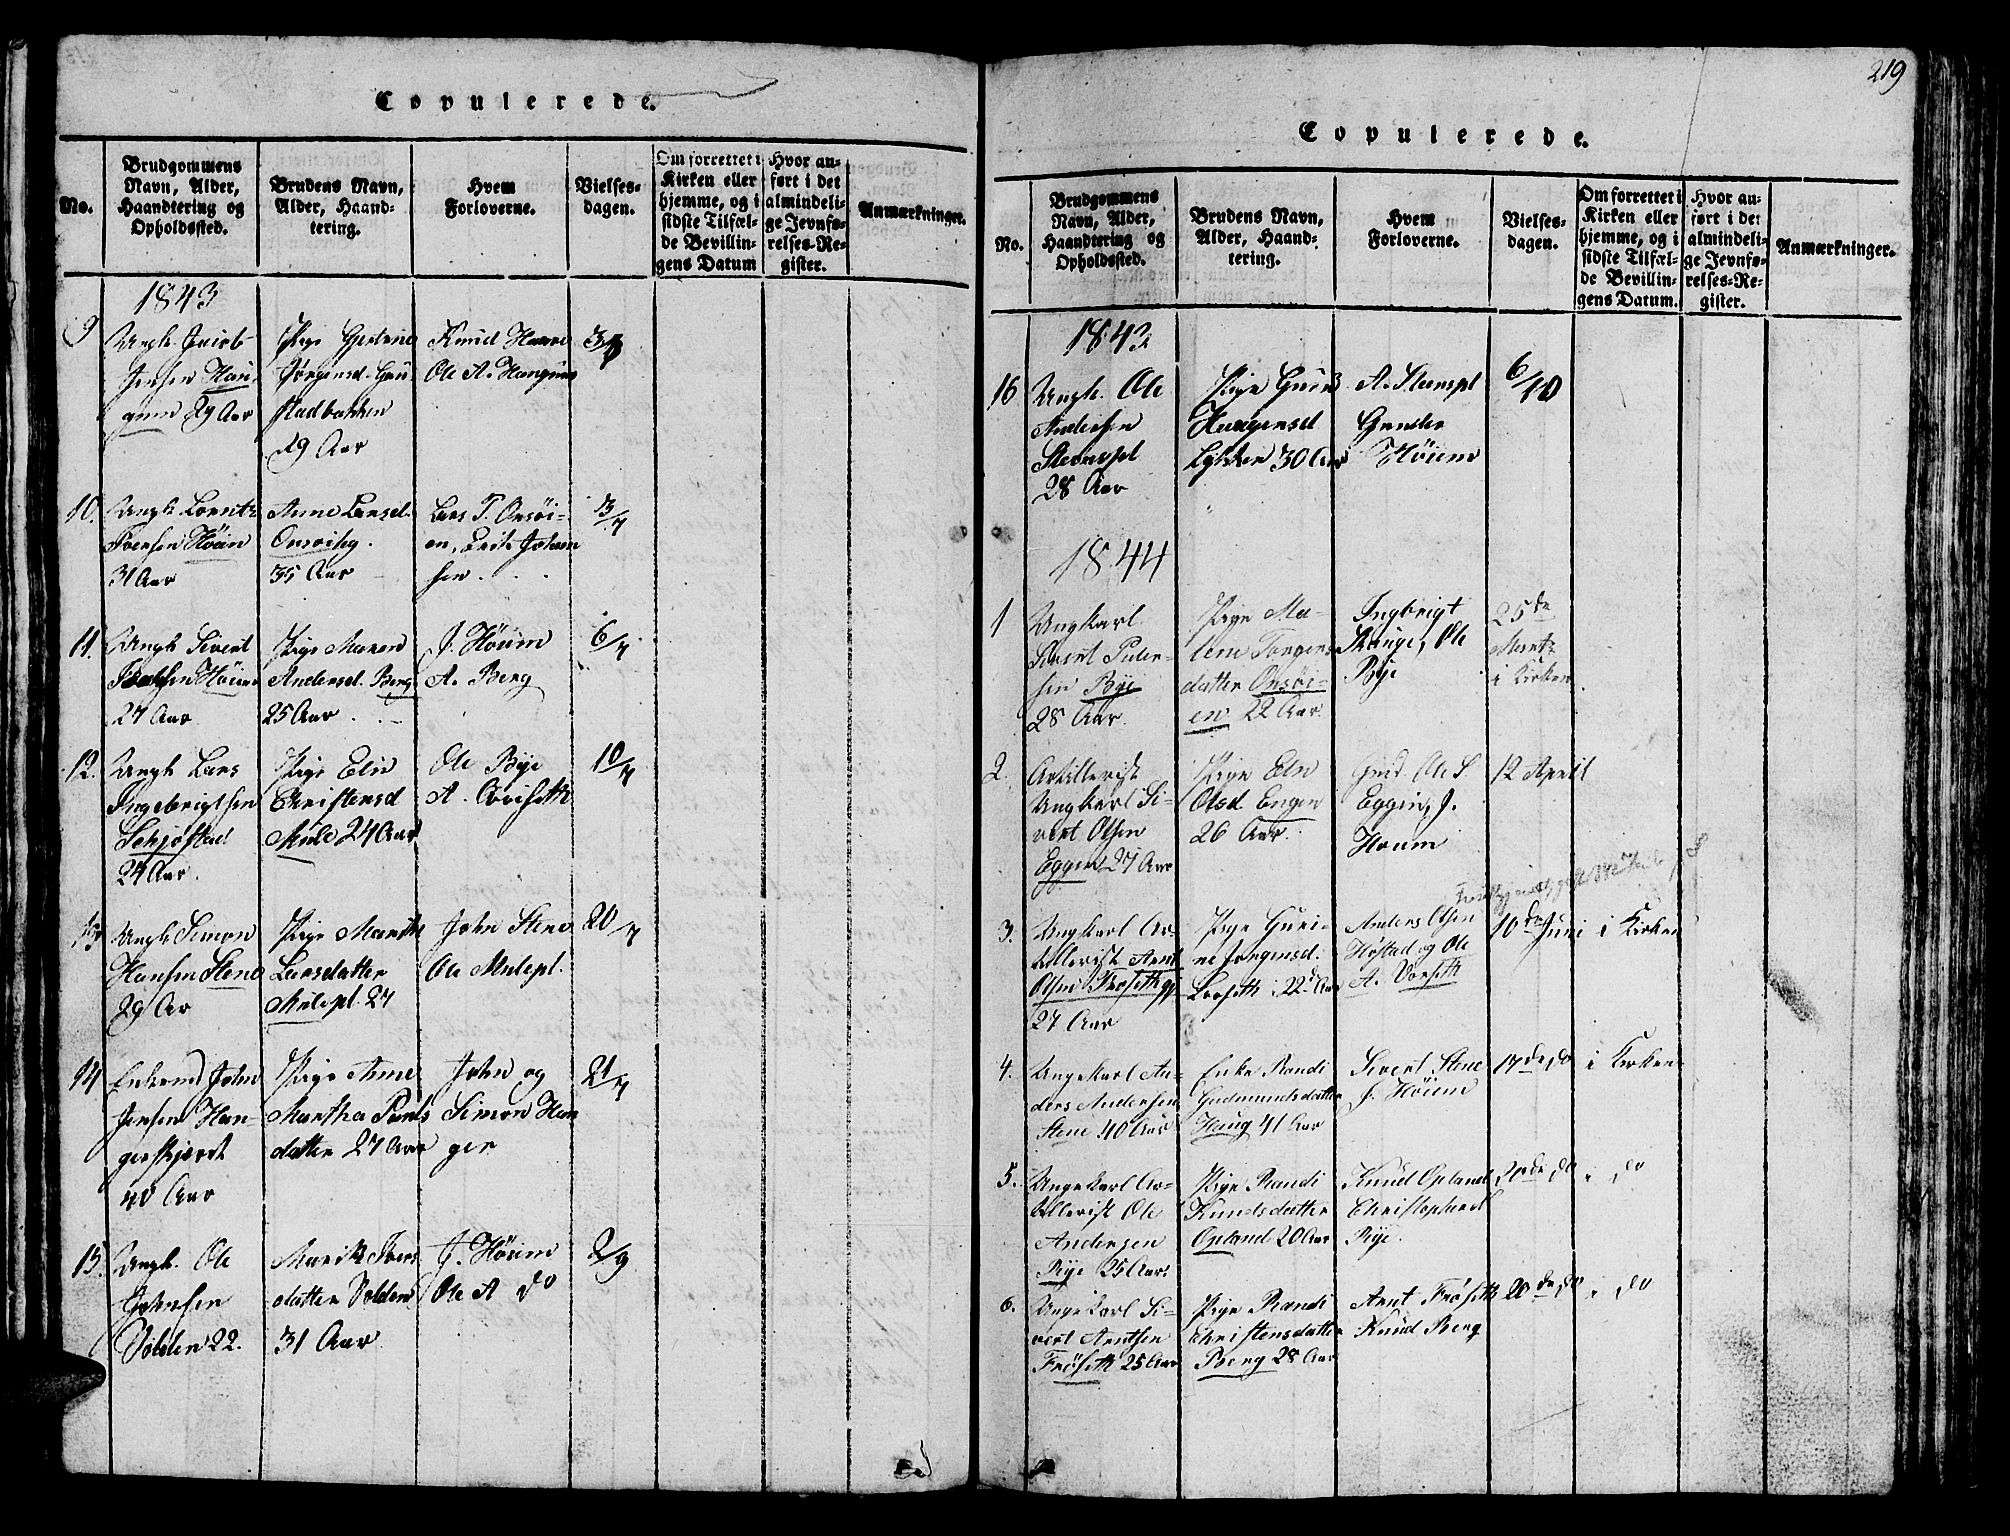 Copulerede.
No.
Brudgommens
Navn, Alder,
Haandtering og
Opholdssted.
Brudens Navn,
Alder, Haand-
tering.
Hvem
Forloverne.
Vielses-
dagen.
Om forrettet i
Kirken eller
hjemme, og i
sidste Tilfæl-
de Bevillin-
gens Datum
Hvor an-
ført i det
almindeli-
ge Jevnfø-
relses-Re-
gister.
Anmærkninger.
1843
9
Ungk.
Jensen
29 Aar
Pige
Jørgensd.
29 Aar
Knud
Ole A.
10.
Ungk. Lorntz
Iversen Höiin
31 Aar
Anne Larsd.
35 Aar
Lars T. Onsöi-
en, Erik Johan
sen
3/7
11.
Ungk Sivert
27 Aar
Pige Maren
Andersd. Berg
25 Aar
J. Höiim
A. Berg
6/7
12.
Ungk Lars
Ingebrigtsen
24 Aar
Pige Elin
Christensd
Mule 24 Aar
Ole Bye
A.
10/7
13
Ungk Simon
Hansen Stene
29 Ar
Pige Marith
Larsdatter
Mulepl. 27
John Stene
Ole Mulepl.
20/7
14
Enkemd John
Jensen Han-
40 Aar
Pige Anne
Martha Pauls
datter 27 Aar
John og
Simon Han
ger
21/7
15.
Ungk. Ole
Johnsen
Volden 22.
Marit Ivers
datter Volden
31 Aar
J. Höiim
Ole A do
2/9
219
Copulerede.
No.
Brudgommens
Navn, Alder,
Haandtering og
Opholdssted.
Brudens Navn,
Alder, Haand-
tering.
Hvem
Forloverne.
Vielses-
dagen.
Om forrettet i
Kirken eller
hjemme, og i
sidste Tilfæl-
de Bevillin-
gens Datum.
Hvor an-
ført i det
almindeli-
ge Jevnfø-
relses-Re-
gister.
Anmærkninger.
1843
16
Ungk. Ole
Andersen
Stenspl
28 Aar
Pige Guru
Haagensd
Lykken 30 Aar
A. Stenspl
Gunder
Höiem
6/10
1844
1
Ungkarl
Sivert Peder-
sen Bye
28 Aar.
Pige Ma-
lene Torgers
datter Onsöi-
en 22 Aar.
Ingbrigt
Stange, Ole
Bye
25de
Martz
i Kirken
2.
Artillerist
Ungkarl Si-
vert Olsen
Eggen 27 Aar
Pige Eln
Olsd Engen
26 Aar.
Gmd. Ole S
Eggen, J.
Houm
12 April
3.
Ungkarl Ar-
tillerist Arnt
Olsen Fröseth
27 Aar
Pige Guri-
ne Jorgensd.
22 Aar
Anders Olsen
Höstad og Ole
A. Vorseth
10de Juni
i Kirken
4.
Ungekarl An-
ders Andersen
Stene 40 Aar
Enke Randi
Gudmundsdatter
Haug 41 Aar
Sivert Stene
J. Höium
17de do
i Kirken
5.
Ungekarl Ar-
tillerist Ole
Andersen
Rye 25 Aar.
Pige Randi
Knudsdatter
Opland 20 Aar
Knud Opland
Christopher
Rye.
20de do
" do
6.
Ungekarl Si-
vert Arntsen
Fröseth 25 Aar
Pige Randi
Christensdatter
Berg 28 Aar
Arnt Fröseth
Knud Berg
20de do
" do